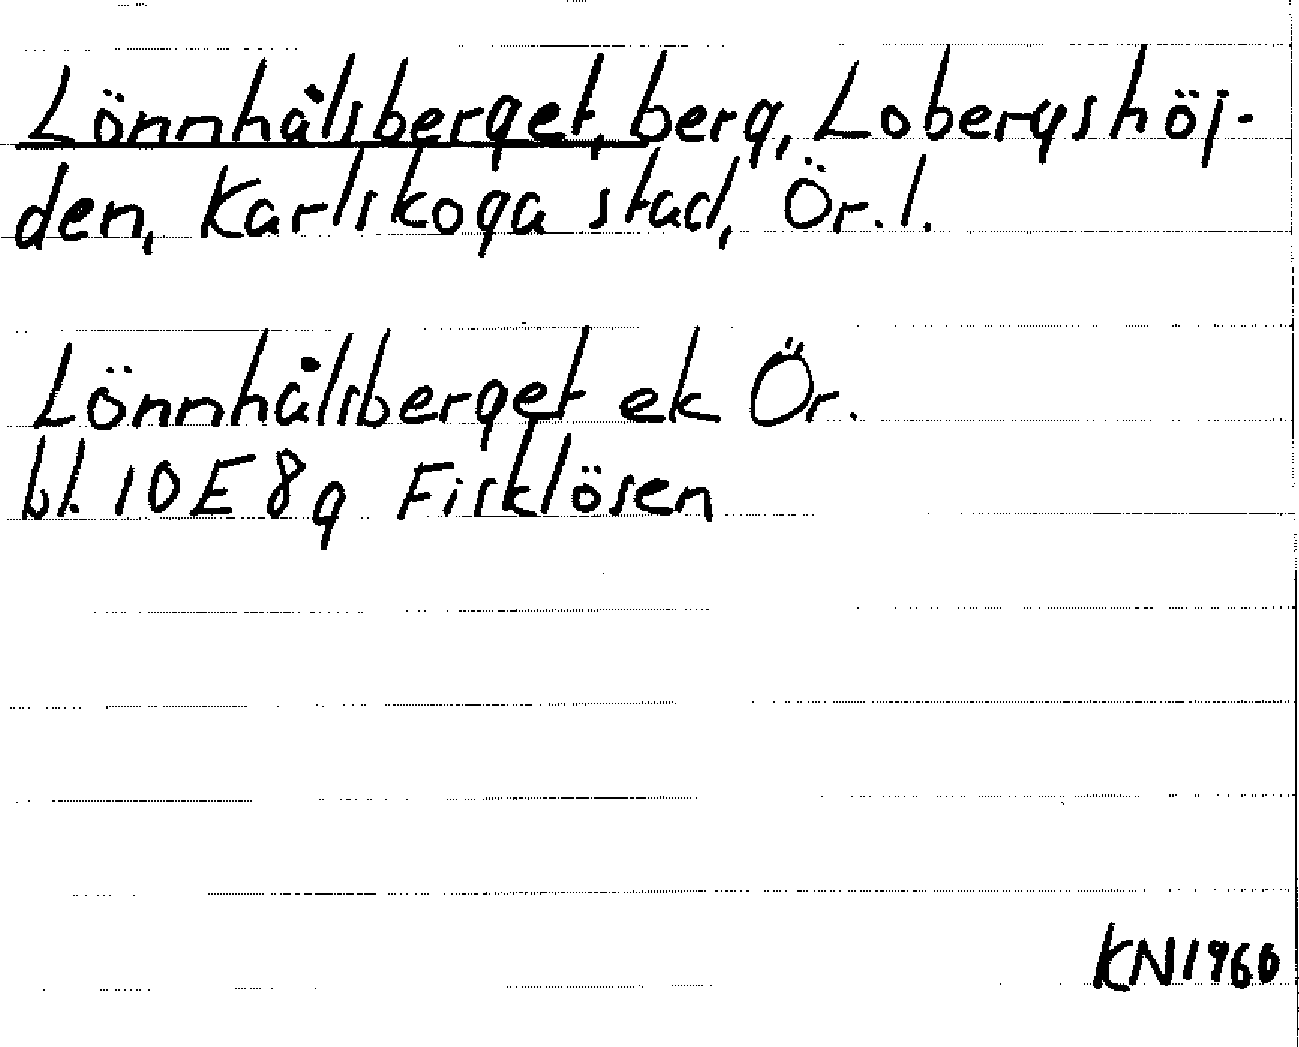 Lönnhålsberget, berg, Lobergshöj-
den, Karlskoga stad, Ör. l.
Lönnhålsberget ek Ör.
bl. 10E8g Fisklösen
KN1960